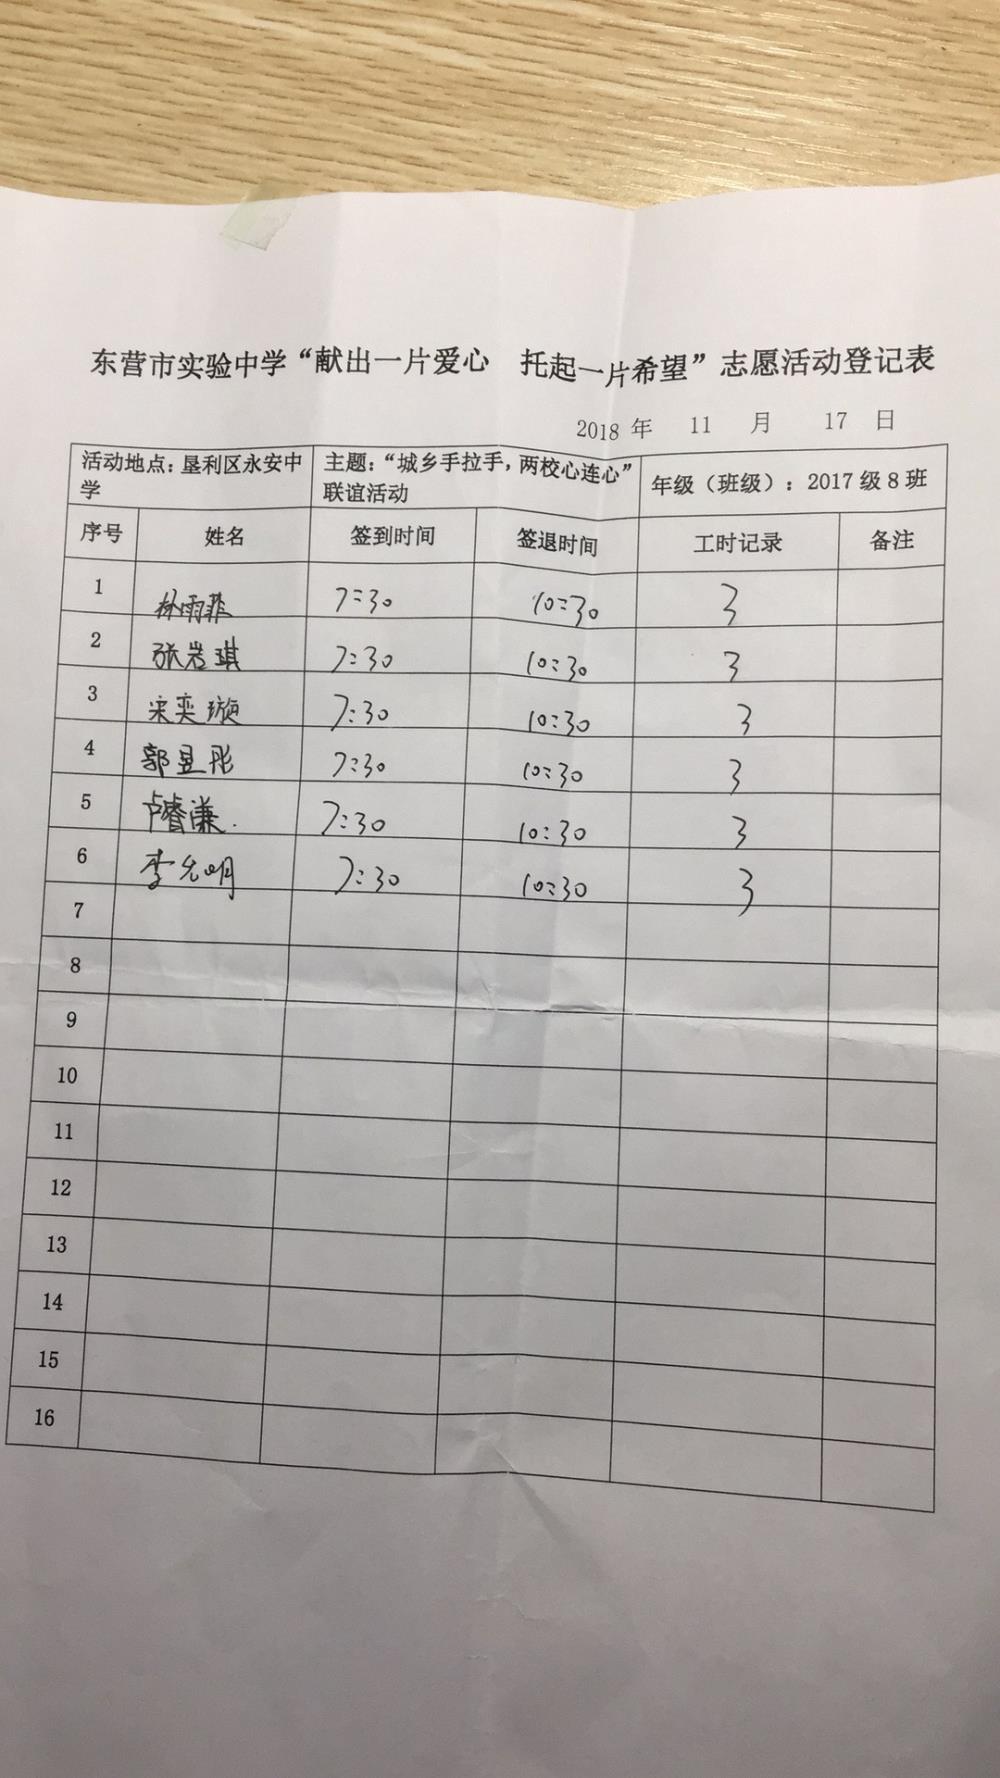 东营市实验中学“献出一片爱心 托起一片希望”志愿活动登记表
2018 年 11 月 17 日
活动地点：垦利区永安中学 主题：“城乡手拉手，两校心连心”联谊活动 年级（班级）：2017 级 8 班
序号 姓名 签到时间 签退时间 工时记录 备注
1 林雨菲 7:30 10:30 3
2 张岩琪 7:30 10:30 3
3 宋奕璇 7:30 10:30 3
4 郭昱彤 7:30 10:30 3
5 卢睿谦. 7:30 10:30 3
6 李允明 7:30 10:30 3
7
8
9
10
11
12
13
14
15
16